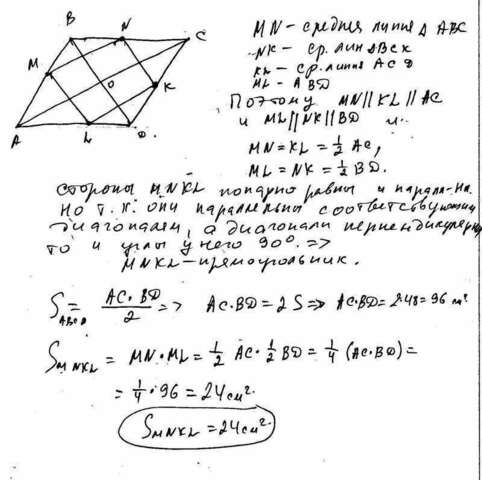 B N C
M K
O
A L D
MN - средняя линия Δ ABC
NK - ср. лин ΔBCK
KL - ср. линия ACD
ML - ABD
Поэтому MN || KL || AC
и ML || NK || BD и
MN = KL = 1/2 AC,
ML = NK = 1/2 BD.
Стороны MNKL попарно равны и паралл-ны
Но т.к. они параллельны соответствующим
диагоналям, а диагонали перпендикулярны
то и углы у него 90°. =>
MNKL - прямоугольник.
S ABCD = AC · BD / 2 => AC · BD = 2S => AC · BD = 2·48 = 96 см²
S MNKL = MN · ML = 1/2 AC · 1/2 BD = 1/4 (AC · BD) =
= 1/4 · 96 = 24 см².
S MNKL = 24 см².